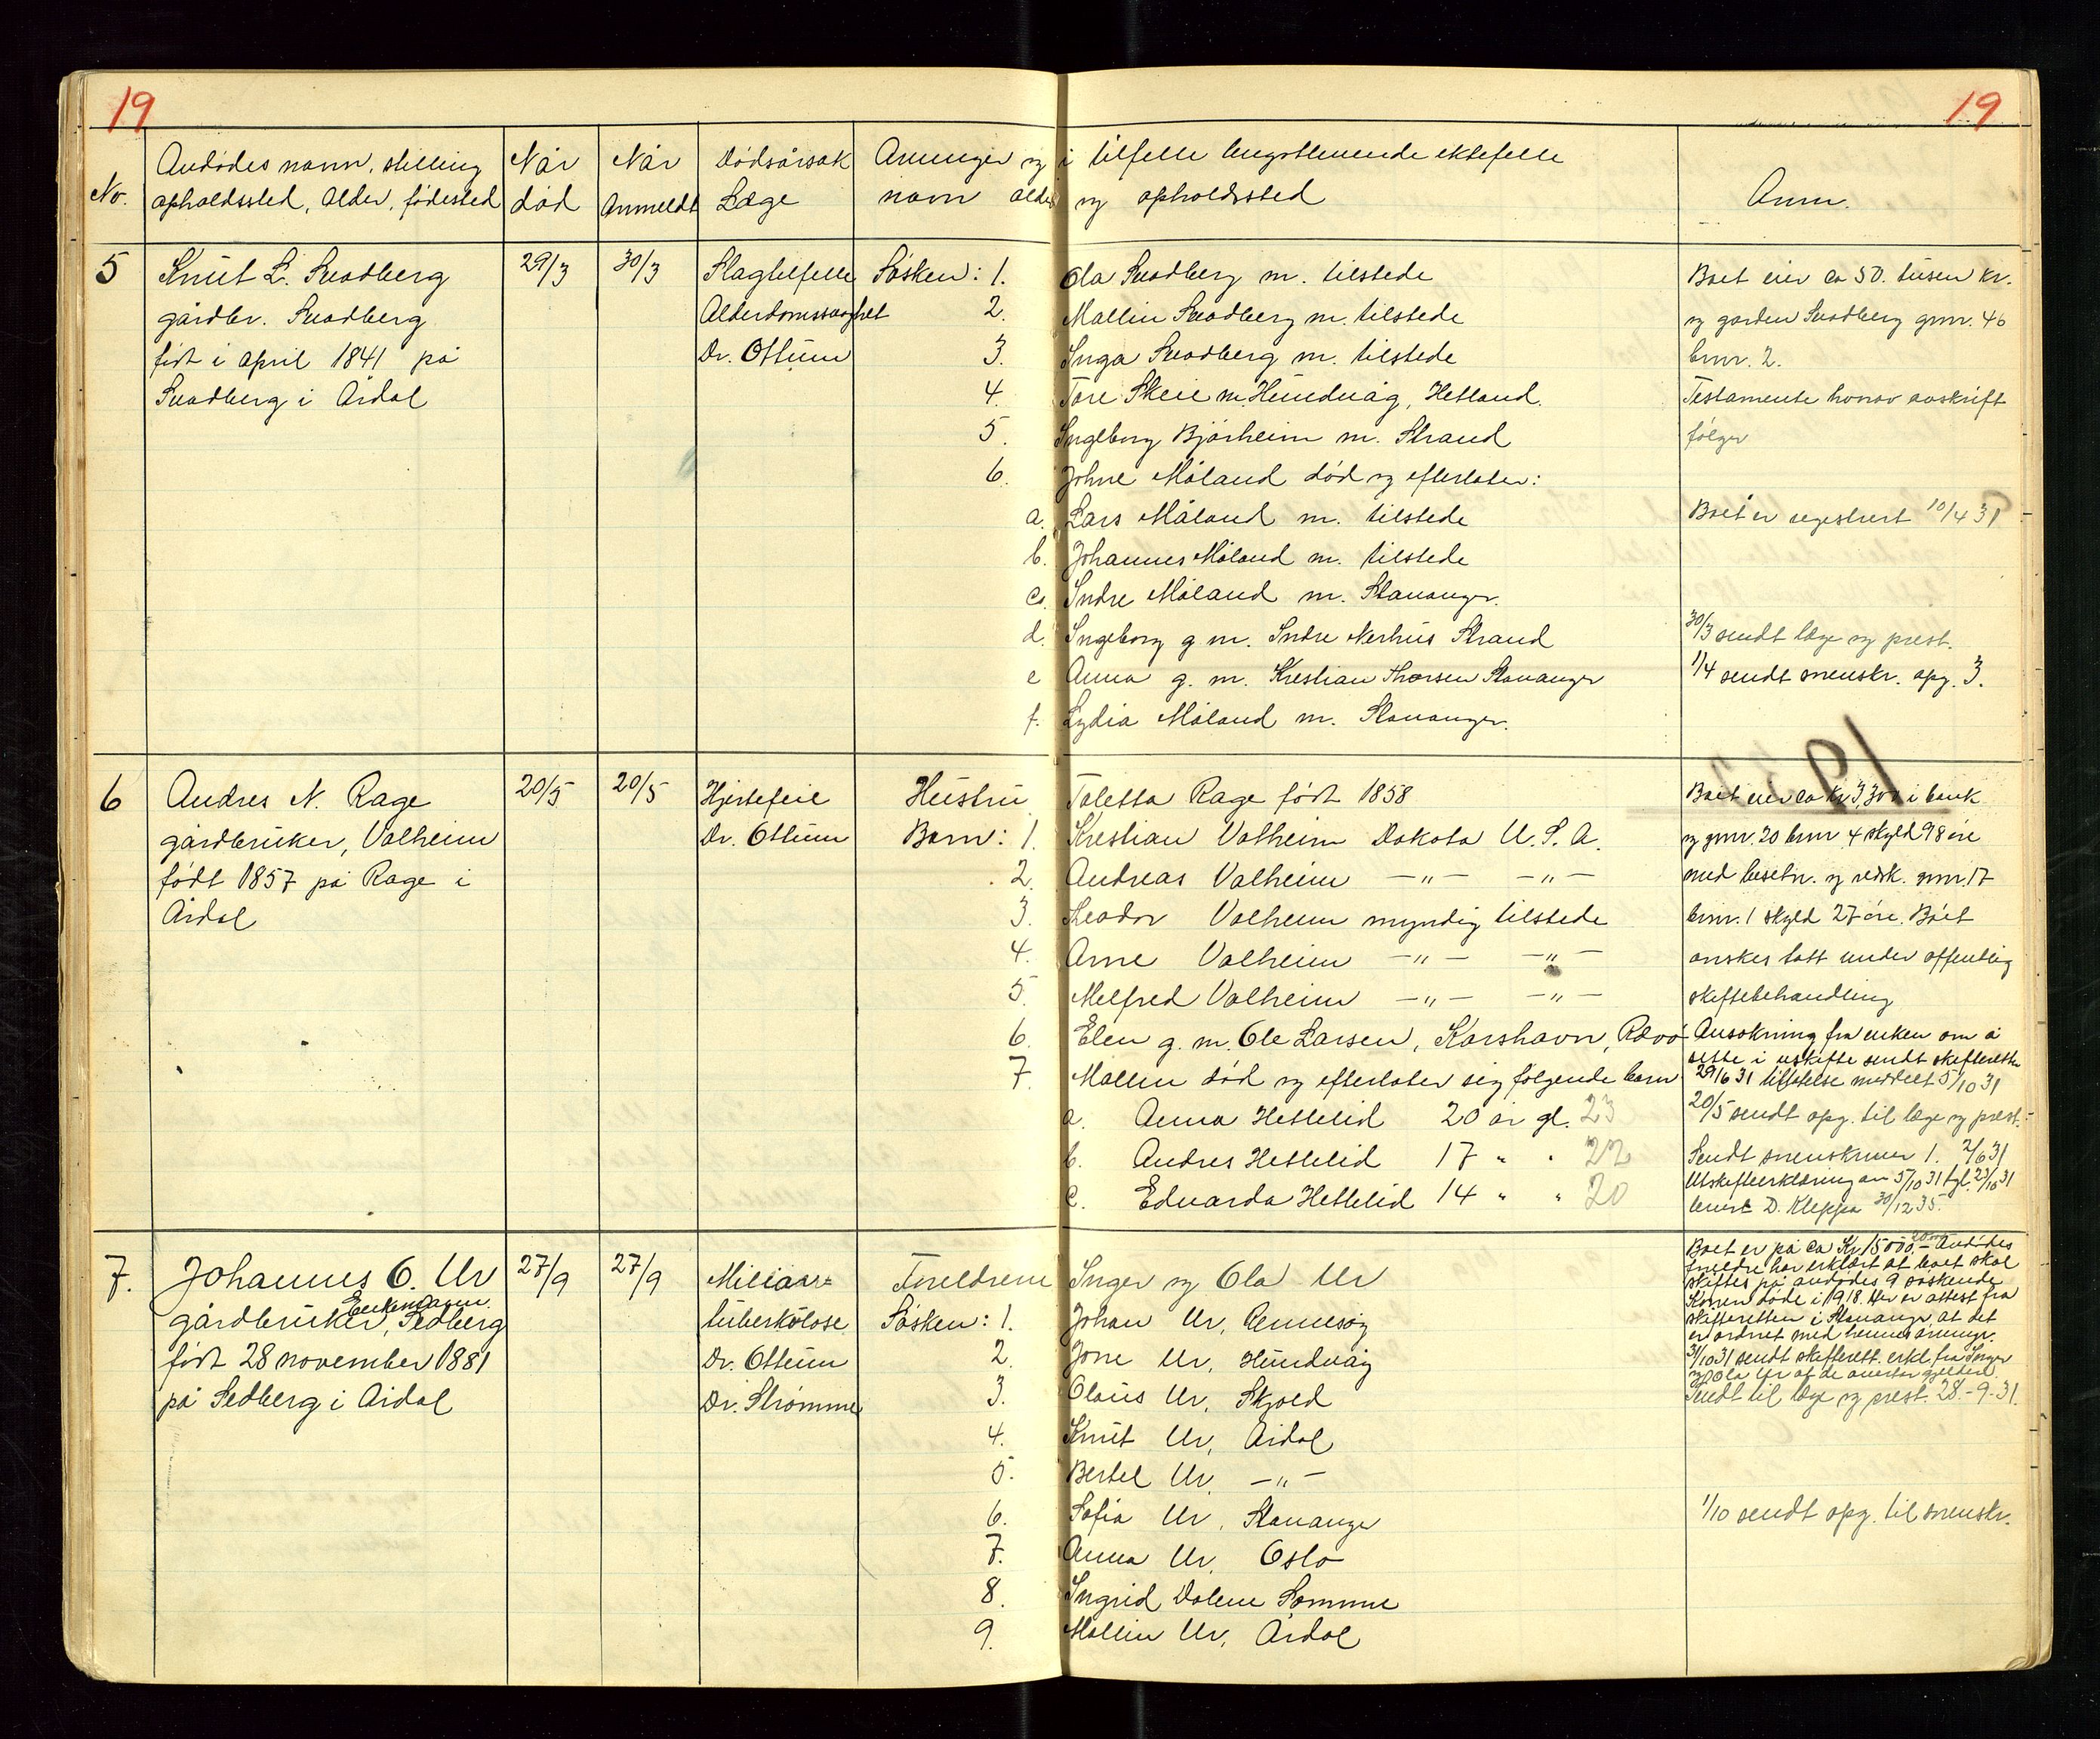 19
19
No.
Avdødes navn, stilling
opholdssted, alder, fødested
Når
død
Når
Anmeldt
Dødsårsak
Læge
Arvinger og i tilfelle lengstlevende ektefelle
navn alder og opholdssted
Anm.
5
Knut L. Svadberg
gårdbr. Svadberg
født i april 1841 på
Svadberg i Årdal
29/3
30/3
Slagtilfelle
Alderdomssvaghet
Dr. Ottum
Søsken: 1. Ola Svadberg m. tilstede
2. Mallin Svadberg m. tilstede
3. Inga Svadberg m. tilstede
4. Tore Skeie m. Hundvåg, Hetland.
5. Ingeborg Bjørheim m. Strand
6. Johne Måland død og efterlater:
a. Lars Måland m. tilstede
b. Johannes Måland m. tilstede
c. Sndre Måland m. Stavanger.
d. Ingeborg g. m. Sndre Nerhus Strand
e Anna g. m. Krestian Thorsen Stavanger
f. Lydia Måland m. Stavanger.
Boet eier ca 50. tusen kr.
og garden Svadberg gnr. 46
brnr. 2.
Testamente hvorav avskrift
følger
Boet er registrert 10/4 31
30/3 sendt læge og prest.
1/4 sendt svenskr. opg. 3.
6
Andres N. Rage
gårdbruker, Valheim
født 1857 på Rage i
Årdal
20/5
20/5
Hjertefeil
Dr. Ottum
Hustru Toletta Rage født 1858
Barn: 1. Krestian Valheim Dakota U.S.A.
2. Andreas Valheim —„— —„—
3. Teodor Valheim myndig tilstede
4. Arne Valheim —„— —„—
5. Melfred Valheim —„— —„—
6. Elen g. m. Ole Larsen, Karshavn,
7. Mallin død og efterlater sig følgende barn
a. Anna Hettelid 20 år gl. 23
b. Andres Hettelid 17 " " 22
c. Edvarda Hettelid 14 " " 20
Boet eier ca kr 3,300 i bank
og gnr. 20 brnr 4 skyld 98 øre
med besetn. og redsk. gnr. 17
brnr. 1 skyld 27 øre. Boet
ønskes tatt under offentlig
skiftebehandling
Ansøkning fra enken om å
sitte i uskifte sendt skifteretten
29/6 31 tillatelse meddelt 5/10 31
20/5 sendt opg. til læge og prest.
Sendt 1. 2/6 31
Uskifteerklæring av 5/10 31 tgl. 23/10 31
D. Kleppa 30/12 35.
7.
Johannes O. Ur
Enkemann
gårdbruker, Sedberg
født 28 november 1881
på Sedberg i Årdal
27/9
27/9
Miliær-
tuberkulose
Dr. Ottum
Dr. Strømme
Foreldrene Inger og Ola Ur
Søsken: 1. Johan Ur, Rennesøy
2. Jone Ur, Hundvåg
3. Olaus Ur, Skjold
4. Knut Ur, Årdal
5. Bertel Ur, —„—
6. Sofia Ur, Stavanger
7. Anna Ur, Oslo
8. Ingrid Dalene Somme
9. Mallin Ur, Årdal
Boet er på ca Kr. 15000.- Avdødes
foreldre har erklært at boet skal
skiftes på avdødes 9 søskende
Konen døde i 1918. Her er attest fra
skifteretten i Stavanger, at det
er ordnet med hennes arvinger.
31/10 31 sendt skifterett. erkl. fra Inger
og Ola Ur at de overtar gjelden.
Sendt til læge og prest. 28.-9-31.
1/10 sendt opg. til svenskr.